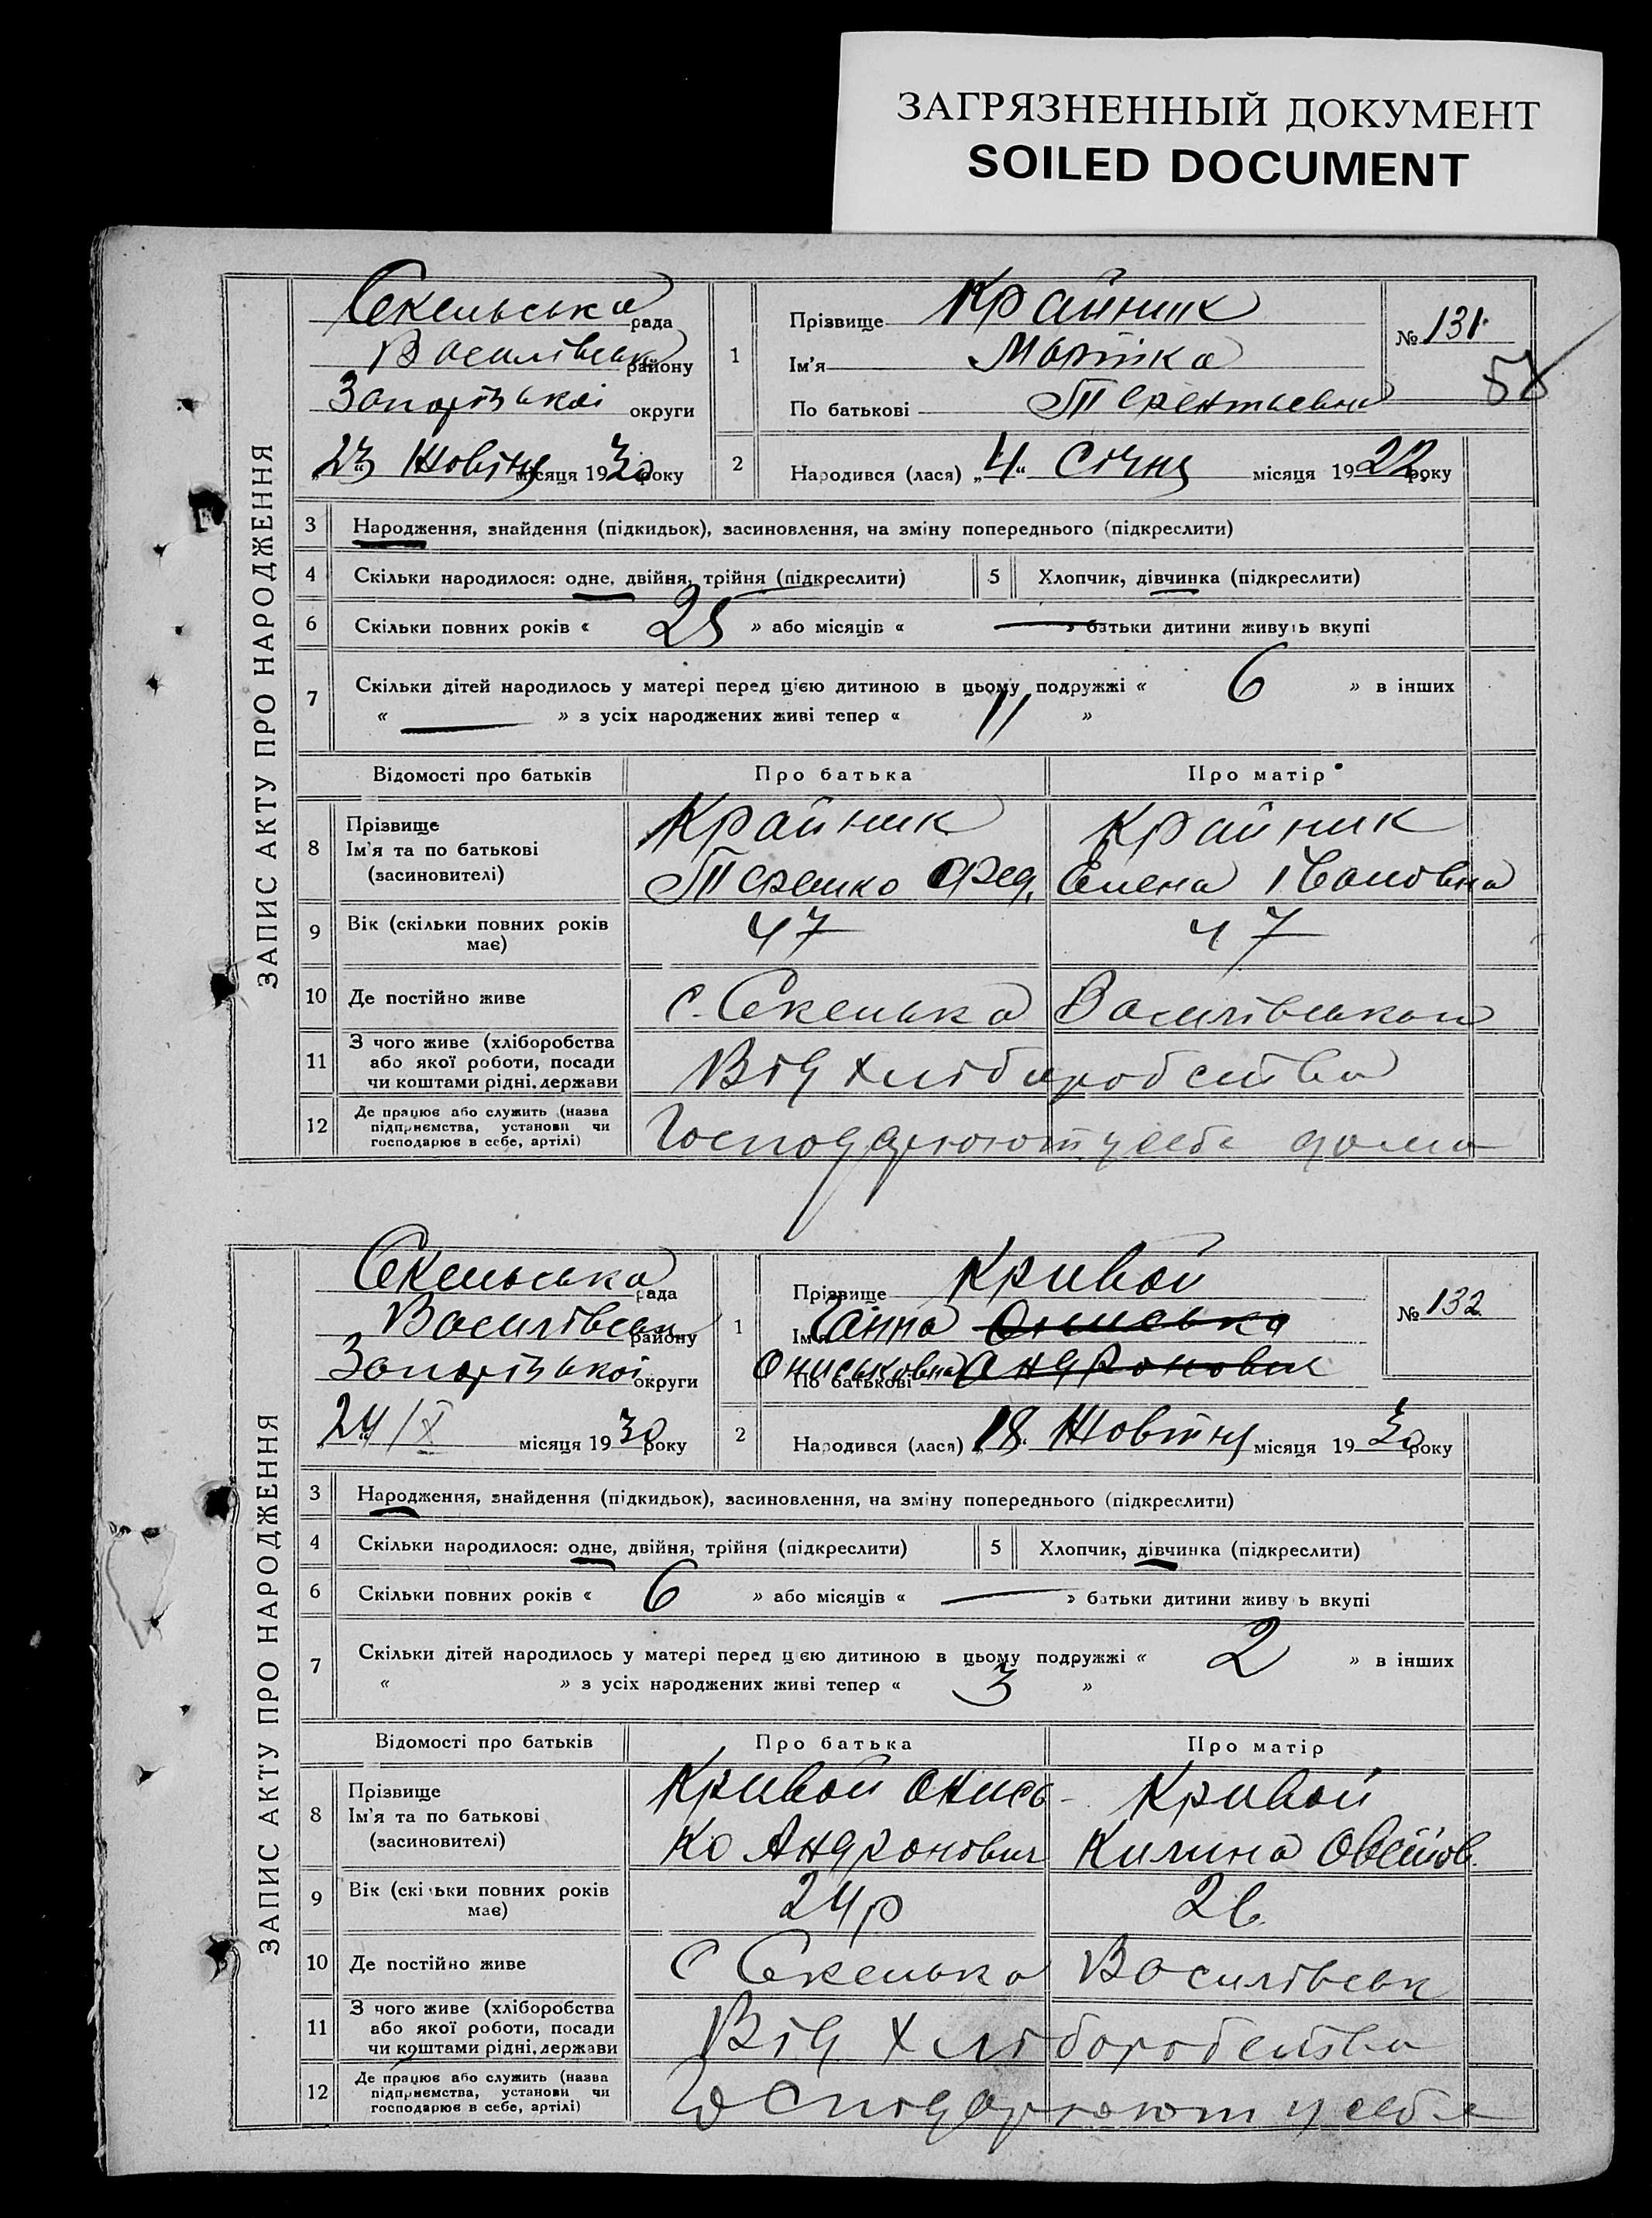 ЗАГРЯЗНЕННЫЙ ДОКУМЕНТ
SOILED DOCUMENT
ЗАПИС АКТУ ПРО НАРОДЖЕННЯ
Секельська рада
Василівськ району
Запорізької округи
23 Жовтня місяця 1930 року
1 Прізвище Крайник
Ім'я Мотька
По батькові Терентьевна
№ 131
58
2 Народився (лася) „4“ Січня місяця 1922 року
3 Народження, знайдення (підкидьок), засиновлення, на зміну попереднього (підкреслити)
4 Скільки народилося: одне, двійня, трійня (підкреслити) 5 Хлопчик, дівчинка (підкреслити)
6 Скільки повних років « 25 » або місяців « — » батьки дитини живуть вкупі
7 Скільки дітей народилось у матері перед цією дитиною в цьому подружжі « 6 » в інших
« — » з усіх народжених живі тепер « »
Відомості про батьків Про батька Про матір
8 Прізвище Ім'я та по батькові (засиновителі)
Крайник Крайник
Терешко Фед. Елена Івановна
9 Вік (скільки повних років має) 47 47
10 Де постійно живе с. Секелька Василівськ
11 З чого живе (хліборобства або якої роботи, посади чи коштами рідні, держави
Від хліборобства
12 Де працює або служить (назва підприємства, установи чи господарює в себе, артілі)
Господарюют у себе дома
ЗАПИС АКТУ ПРО НАРОДЖЕННЯ
Секельська рада
Василівськ району
Запорізької округи
24/X місяця 1930 року
1 Прізвище Кривой
Ім'я Ганна Ониська
По батькові Ониськовна Андронович
№ 132
2 Народився (лася) „18“ Жовтня місяця 1930 року
3 Народження, знайдення (підкидьок), засиновлення, на зміну попереднього (підкреслити)
4 Скільки народилося: одне, двійня, трійня (підкреслити) 5 Хлопчик, дівчинка (підкреслити)
6 Скільки повних років « 6 » або місяців « — » батьки дитини живуть вкупі
7 Скільки дітей народилось у матері перед цією дитиною в цьому подружжі « 2 » в інших
« » з усіх народжених живі тепер « 3 »
Відомості про батьків Про батька Про матір
8 Прізвище Ім'я та по батькові (засиновителі)
Кривой Онись- Кривой
ко Андронович Килина Овсійов.
9 Вік (скільки повних років має) 24 р 26
10 Де постійно живе с Секелька Василівськ
11 З чого живе (хліборобства або якої роботи, посади чи коштами рідні, держави
Від хліборобства
12 Де працює або служить (назва підприємства, установи чи господарює в себе, артілі)
Господарюют у себе